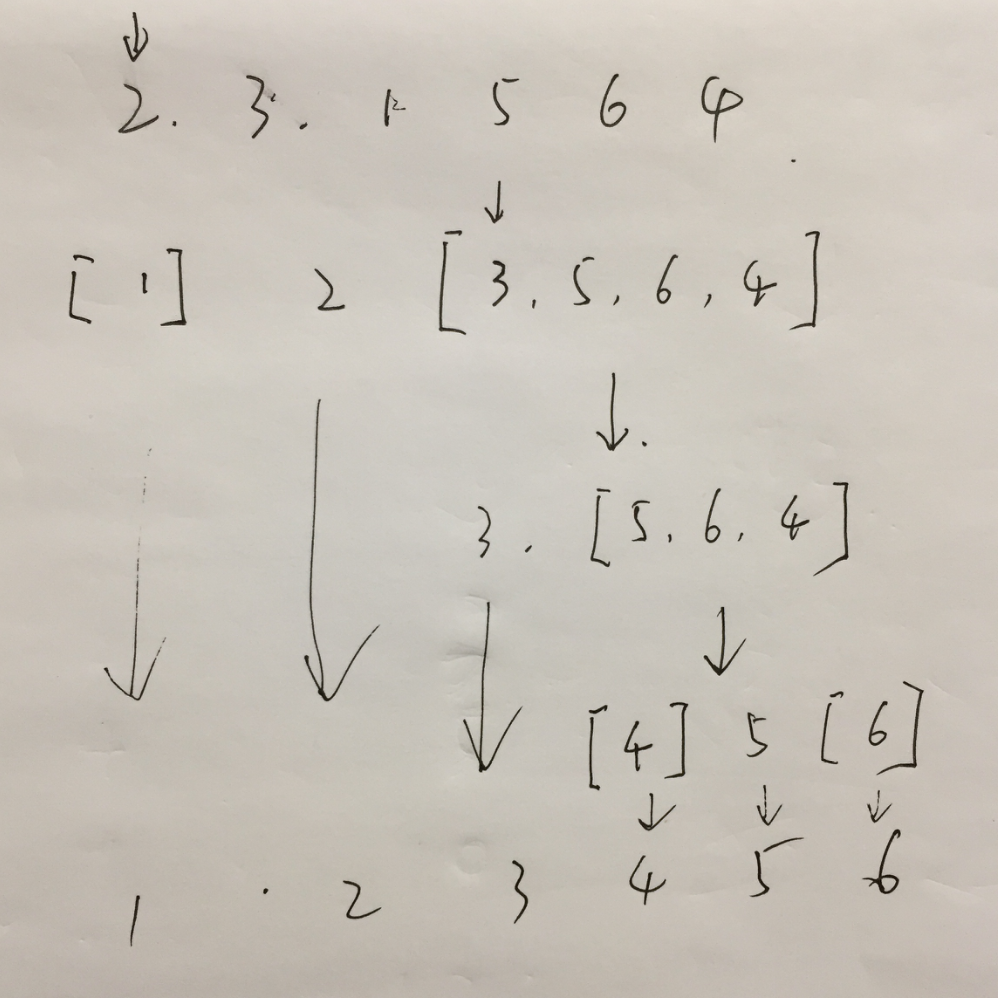 2. 3. 1 5 6 4
[ 1 ] 2 [ 3, 5, 6, 4 ]
3. [ 5, 6, 4 ]
[ 4 ] 5 [ 6 ]
1 2 3 4 5 6